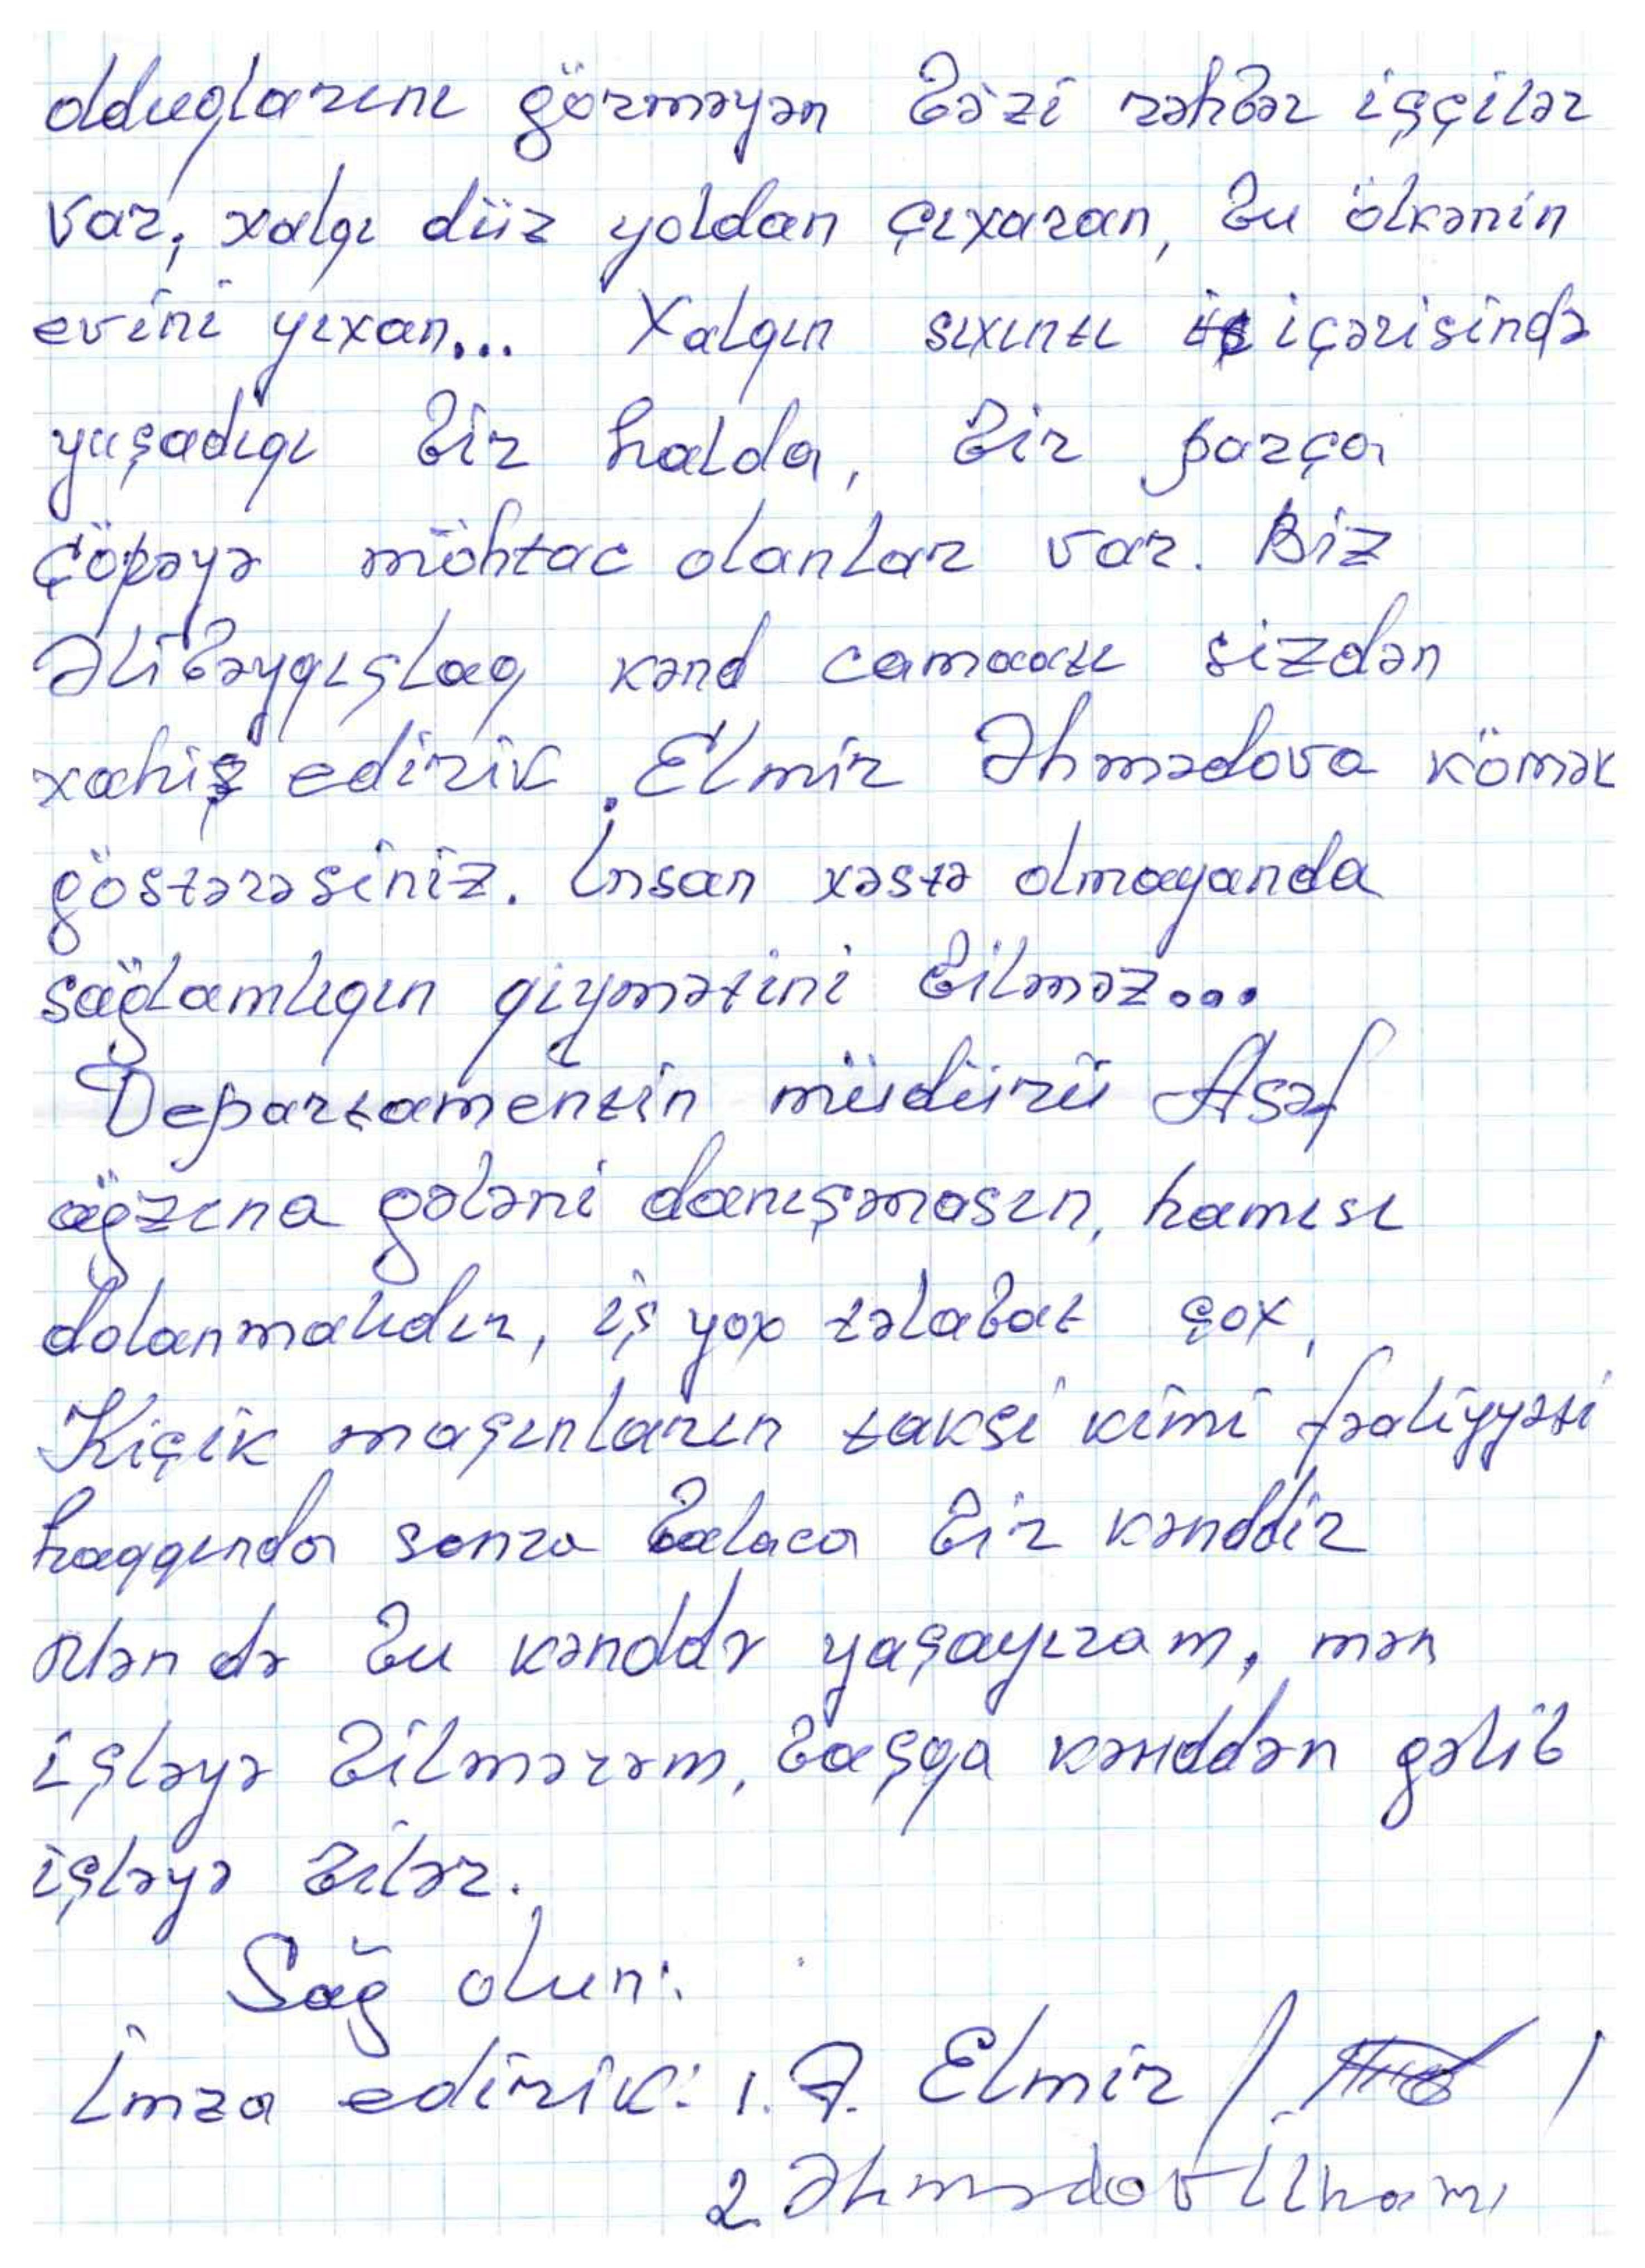 olduqlarını görməyən bəzi rəhbər işçilər
var, xalqı düz yoldan çıxaran, bu ölkənin
evini yıxan... Xalqın sıxıntı içərisində
yaşadıqı bir halda, bir parça
çöpəyə möhtac olanlar var. Biz
Əlibəyqışlaq kənd camaatı sizdən
xahiş edirik Elmir Əhmədova kömək
göstərəsiniz. İnsan xəstə olmayanda
sağlamlıqın qiymətini bilməz...
Departamentin müdürü Asəf
ağzına gələni danışmasın, hamısı
dolanmalıdır, iş yox tələbat çox,
Kiçik maşınların taksi kimi fəaliyyəti
haqqında sonra balaca bir kənddir
Mən də bu kənddə yaşayıram, mən
işləyə bilmərəm, başqa kənddən gəlib
işləyə bilər.
Sağ olun.
İmza edirik: 1. Ə. Elmir / /
2. Əhmədov İlham